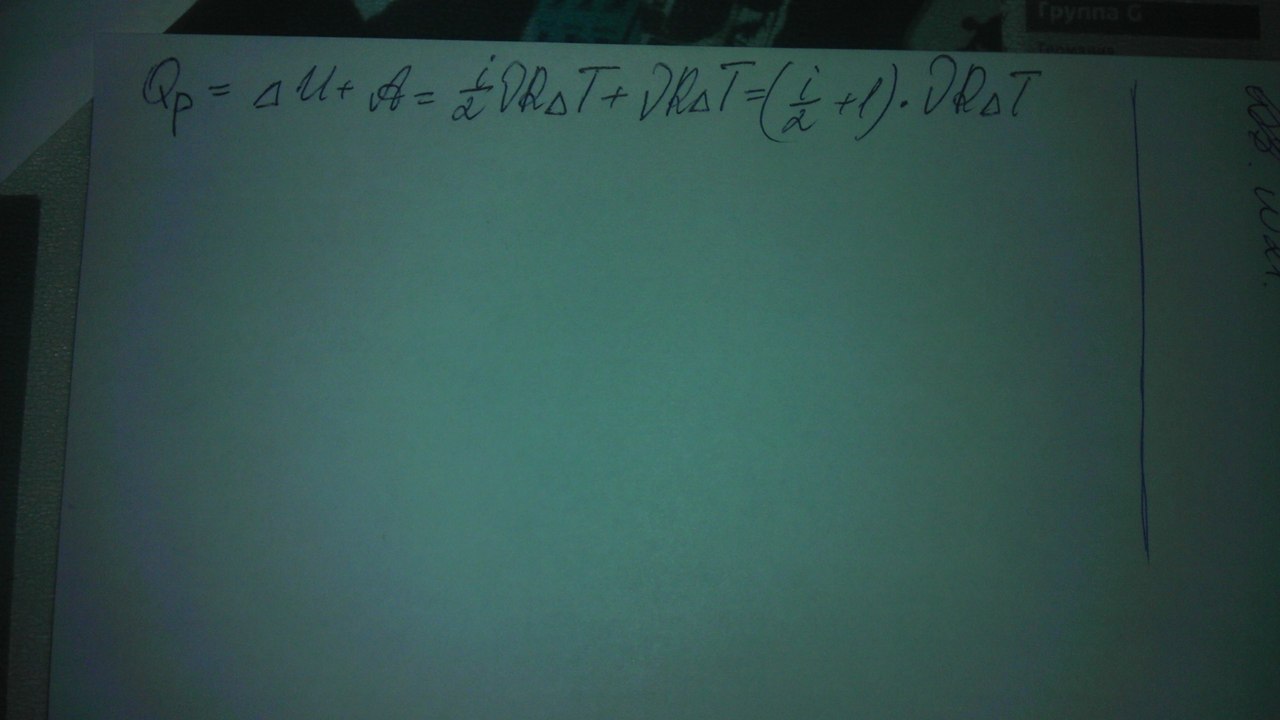 Группа G
Qₚ = ΔU + A = i/2 νRΔT + νRΔT = (i/2 + 1) · νRΔT